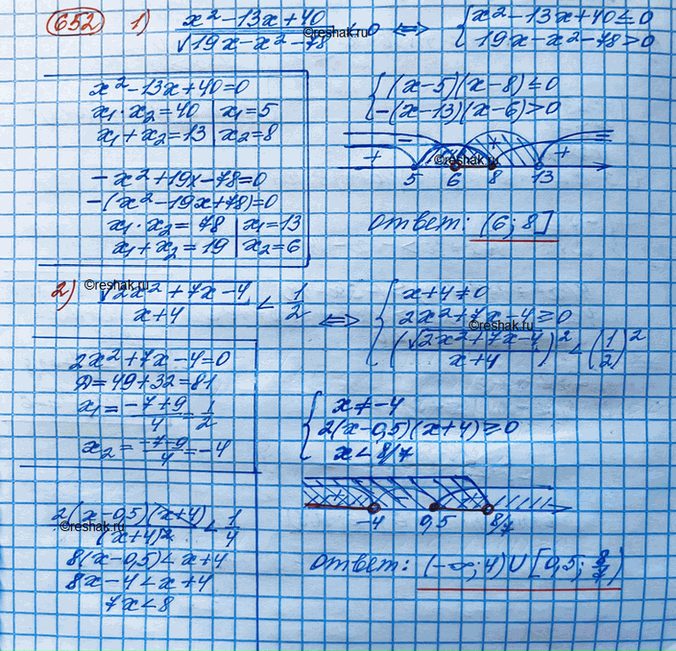 652 1) x² - 13x + 40 / √19x - x² - 78 ≤ 0 ⇔ { x² - 13x + 40 ≤ 0
19x - x² - 78 > 0
©reshak.ru
x² - 13x + 40 = 0
x₁ · x₂ = 40 | x₁ = 5
x₁ + x₂ = 13 | x₂ = 8
- x² + 19x - 78 = 0
-(x² - 19x + 78) = 0
x₁ · x₂ = 78 | x₁ = 13
x₁ + x₂ = 19 | x₂ = 6
{ (x-5)(x-8) ≤ 0
-(x-13)(x-6) > 0
+ - + +
©reshak.ru
5 6 8 13
ответ: (6; 8]
©reshak.ru
2) √2x² + 7x - 4 / x + 4 < 1/2 ⇔ { x + 4 ≠ 0
2x² + 7x - 4 ≥ 0
©reshak.ru
(√2x² + 7x - 4 / x + 4)² < (1/2)²
2x² + 7x - 4 = 0
D = 49 + 32 = 81
x₁ = -7+9 / 4 = 1/2
x₂ = -7-9 / 4 = -4
{ x ≠ -4
2(x-0,5)(x+4) ≥ 0
x < 8/7
+ - +
-4 0,5 8/7
2(x-0,5)(x+4) / (x+4)² < 1/4
©reshak.ru
8(x-0,5) < x+4
8x - 4 < x + 4
7x < 8
ответ: (-∞; 4) ∪ [0,5; 8/7)